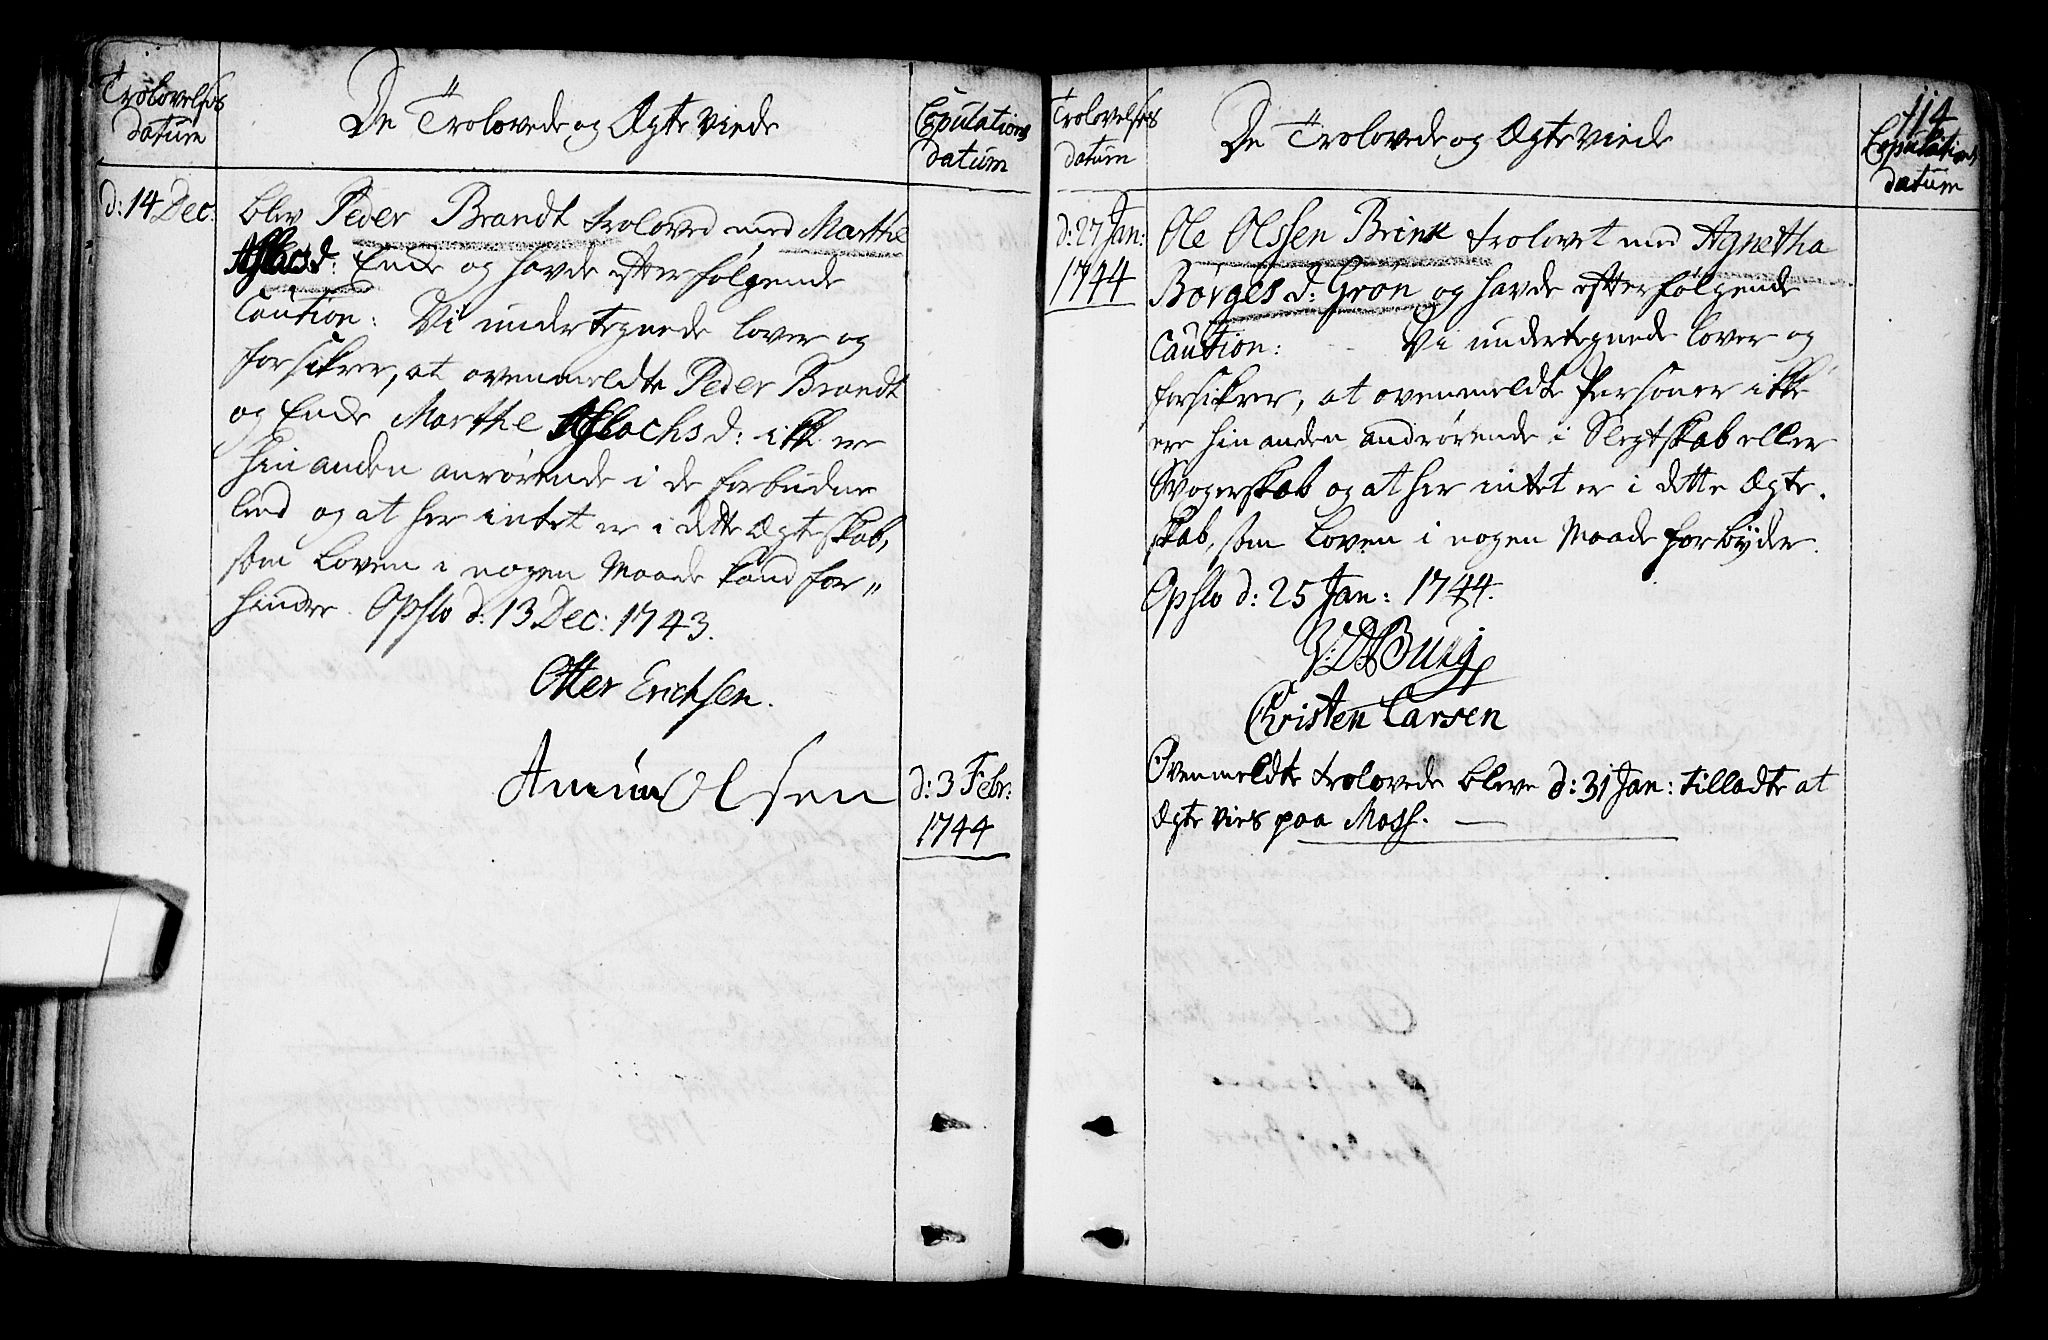 Trolovelses
datum
De Trolovede og Ægteviede
Copulations
datum
d: 14 Dec:
blev Peder Brandt troloved med Marthe
Aslacsd: Ende og havde efterfølgende
Caution: Vi undertegnede lover og
forsikrer, at ovenmeldte Peder Brandt
og Ende Marthe Aslachsd: ikke ere
hinanden anrørende i de forbudne
leed og at her intet er i dette Ægteskab,
som Loven i nogen Maade kand for„
hindre. Opslo d: 13 Dec: 1743.
Otter Erichsen.
Amun Olsen
d: 3 Febr:
1744
114
Trolovelses
datum
De Trolovede og Ægteviede
Copulations
datum
d: 27 Jan:
1744
Ole Olssen Brink trolovet med Agnetha
Børges d: Grøn og havde efterfølgende
Caution: Vi undertegnede lover og
forsikrer, at ovenmeldte Personer ikke
ere hinanden andrørende i Slegtskab eller
Svogerskab og at her intet er i dette Ægte-
skab, som Loven i nogen Maade forbyder.
Opslo d: 25 Jan: 1744.
Burg
Christen Larsen
Ovenmeldte trolovede bleve d: 31 Jan: tilladte at
Ægte vies paa Moss.